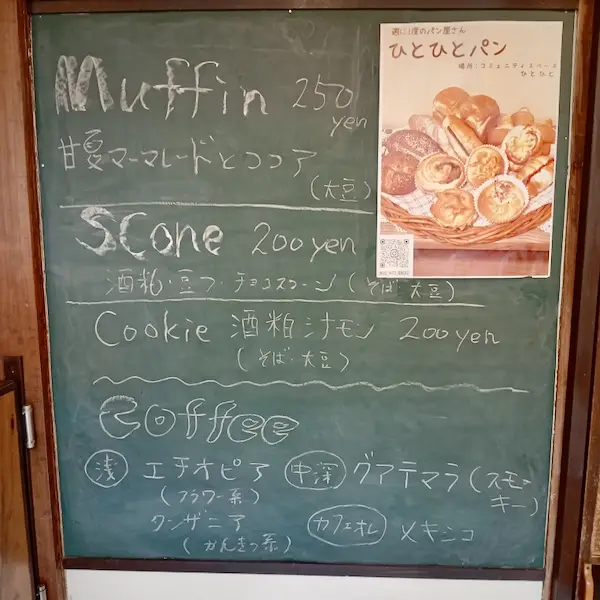 Muffin 250 yen
甘夏マーマレードとココア
(大豆)
Scone 200 yen
酒粕・豆フ・チョコスコーン(そば・大豆)
Cookie 酒粕シナモン 200 yen
(そば・大豆)
Coffee
浅 エチオピア
(フラワー系)
タンザニア
(かんきつ系)
中深 グアテマラ(スモーキー)
カフェオレ メキシコ
週に1度のパン屋さん
ひとひとパン
場所:コミュニティスペース
ひとひと